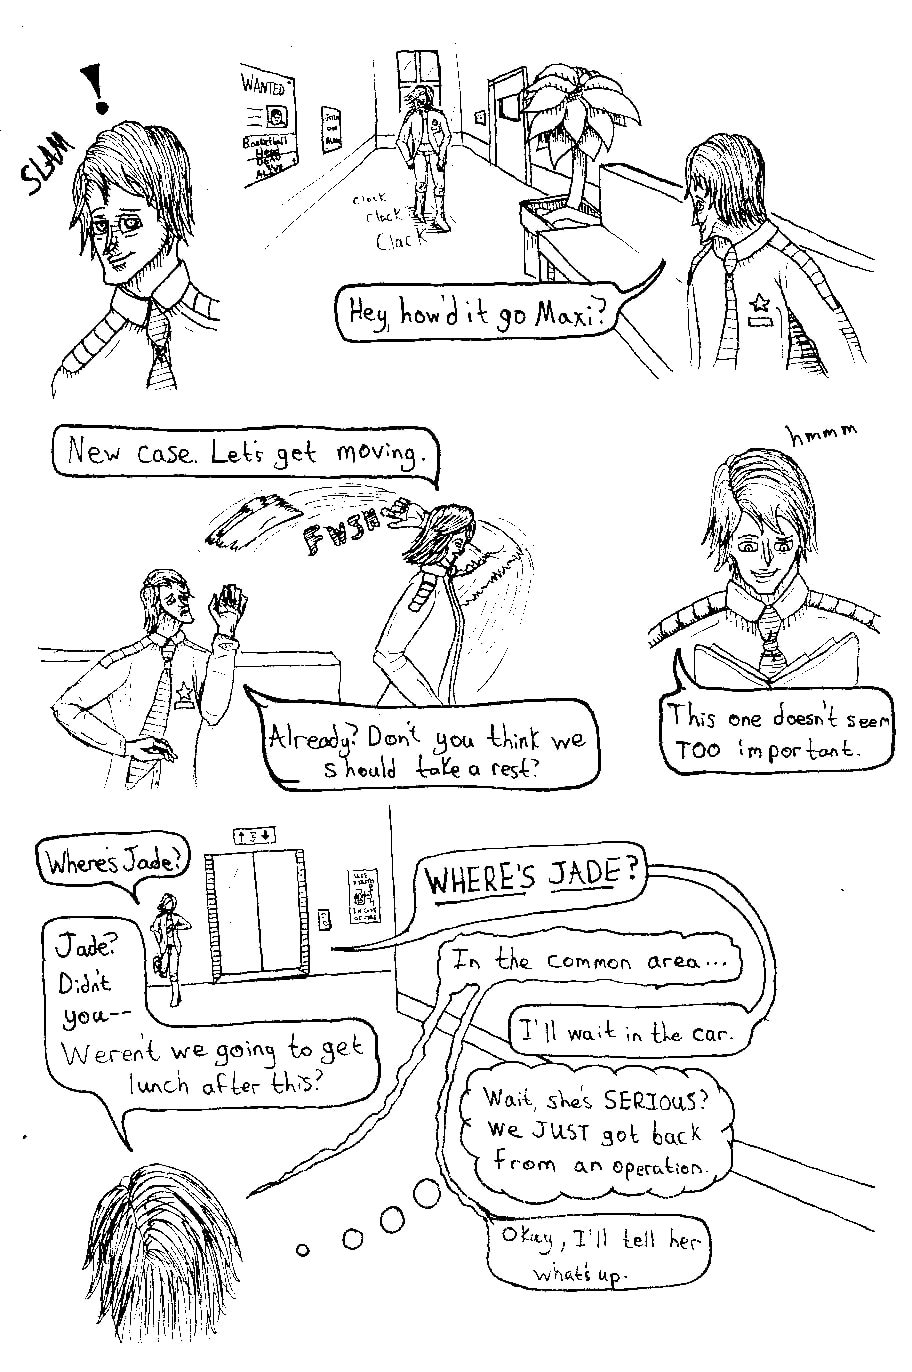 !
SLAM
WANTED
Basketball
Hero
Alive
Clack
Clack
Clack
Hey, how'd it go Maxi?
New case. Let's get moving.
FWSH
hmmm
Already? Don't you think we
should take a rest?
This one doesn't seem
TOO important.
Where's Jade?
WHERE'S JADE?
Jade?
Didn't
you--
Weren't we going to get
lunch after this?
In the common area...
I'll wait in the car.
Wait, she's SERIOUS?
We JUST got back
from an operation.
Okay, I'll tell her
what's up.